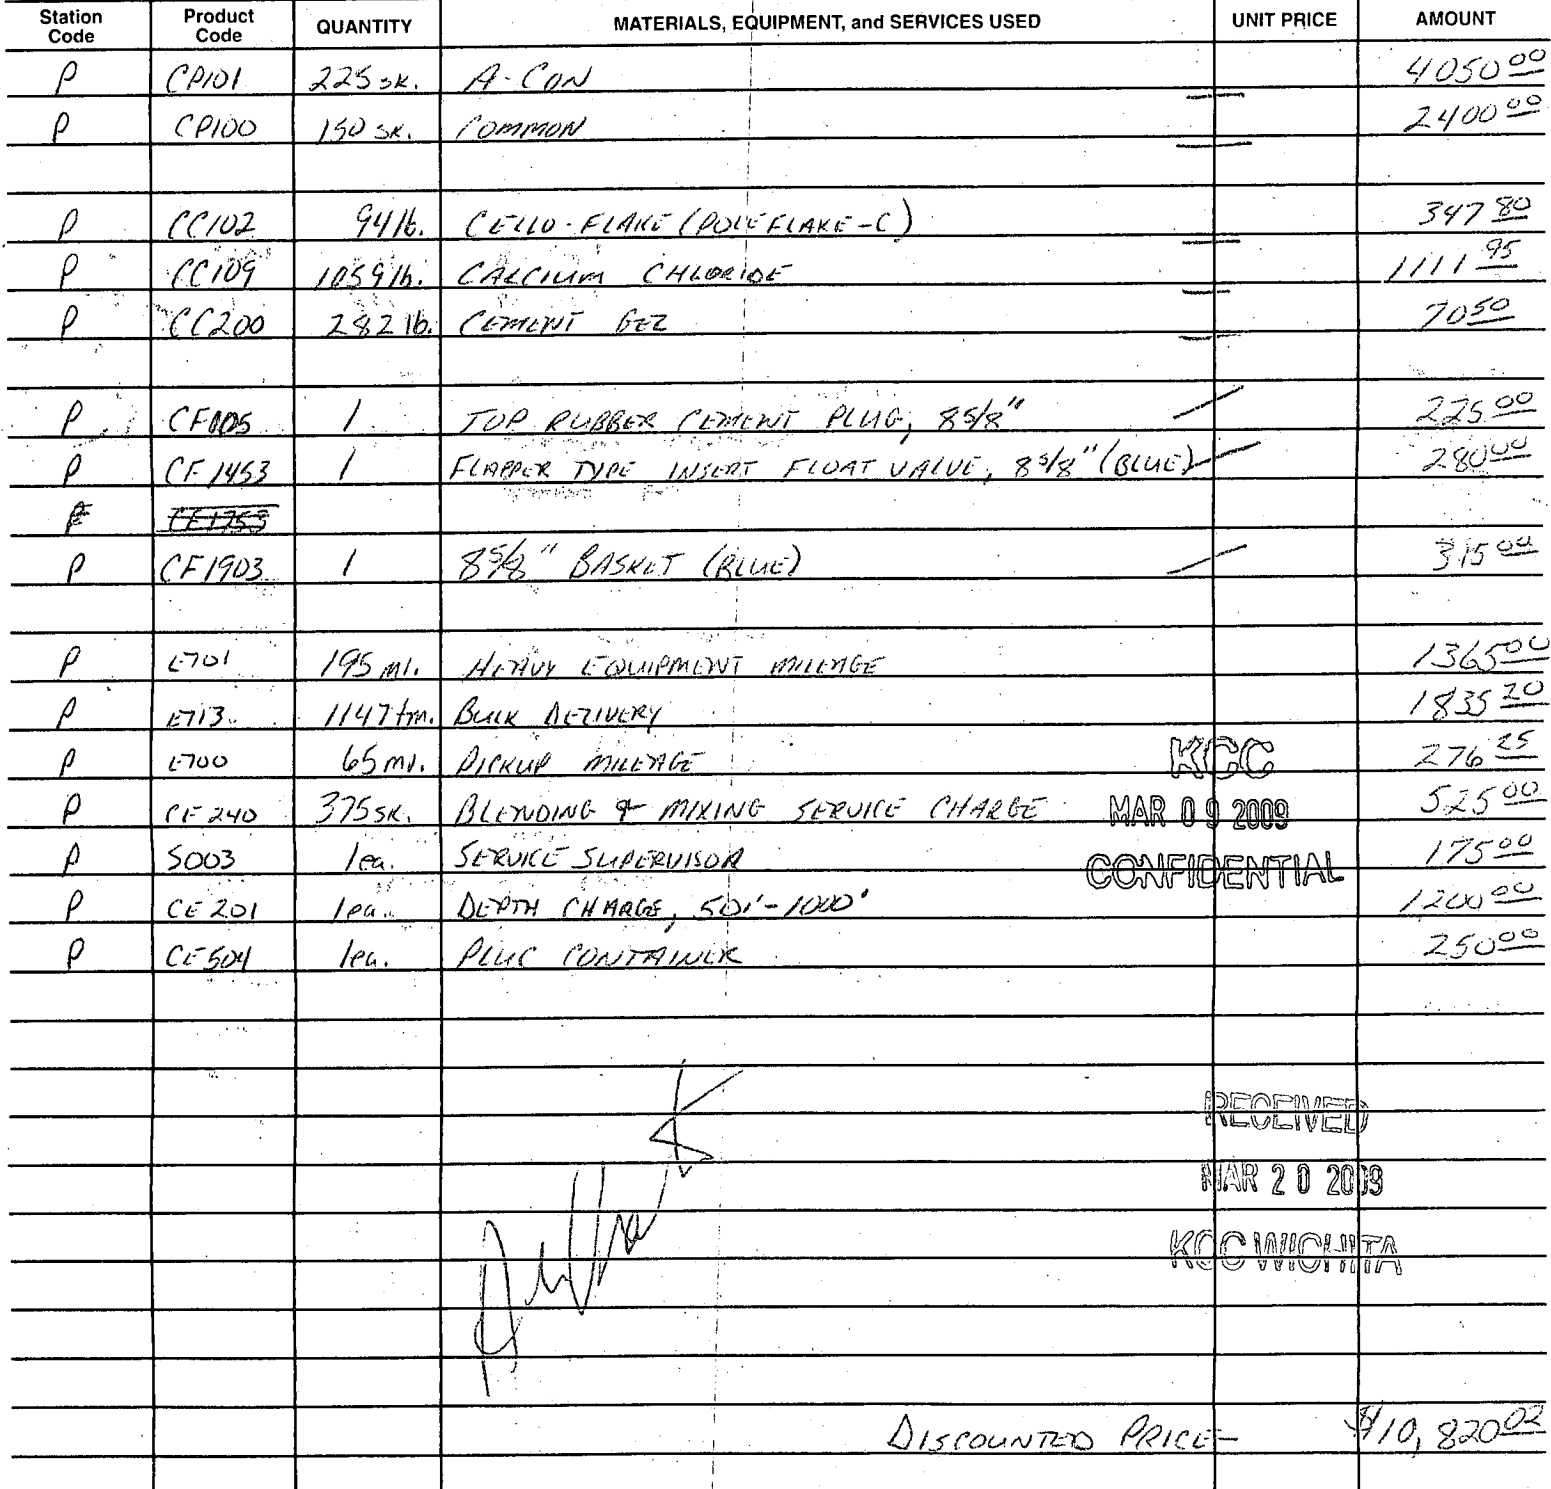 Station Code Product Code QUANTITY MATERIALS, EQUIPMENT, and SERVICES USED UNIT PRICE AMOUNT
P CP101 225 sk. A-CON 4050 00
P CP100 150 sk. COMMON 2400 00
P CC102 94 lb. CELLO-FLAKE (POLEFLAKE-C) 347 80
P CC109 1059 lb. CALCIUM CHLORIDE 1111 95
P CC200 282 lb. CEMENT GEL 70 50
P CF105 1 TOP RUBBER CEMENT PLUG, 8 5/8" 225 00
P CF1453 1 FLAPPER TYPE INSERT FLOAT VALVE, 8 5/8" (BLUE) 280 00
P CF1903 1 8 5/8" BASKET (BLUE) 315 00
P E701 195 mi. HEAVY EQUIPMENT MILEAGE 1365 00
P E713 1147 tm. BULK DELIVERY 1835 20
P E700 65 mi. PICKUP MILEAGE 276 25
KCC
P CE240 375 sk. BLENDING & MIXING SERVICE CHARGE 525 00
MAR 09 2009
P S003 1 ea. SERVICE SUPERVISOR 175 00
CONFIDENTIAL
P CE201 1 ea. DEPTH CHARGE, 501'-1000' 1200 00
P CE504 1 ea. PLUG CONTAINER 250 00
RECEIVED
MAR 20 2009
KCC WICHITA
DISCOUNTED PRICE- $10,820 02